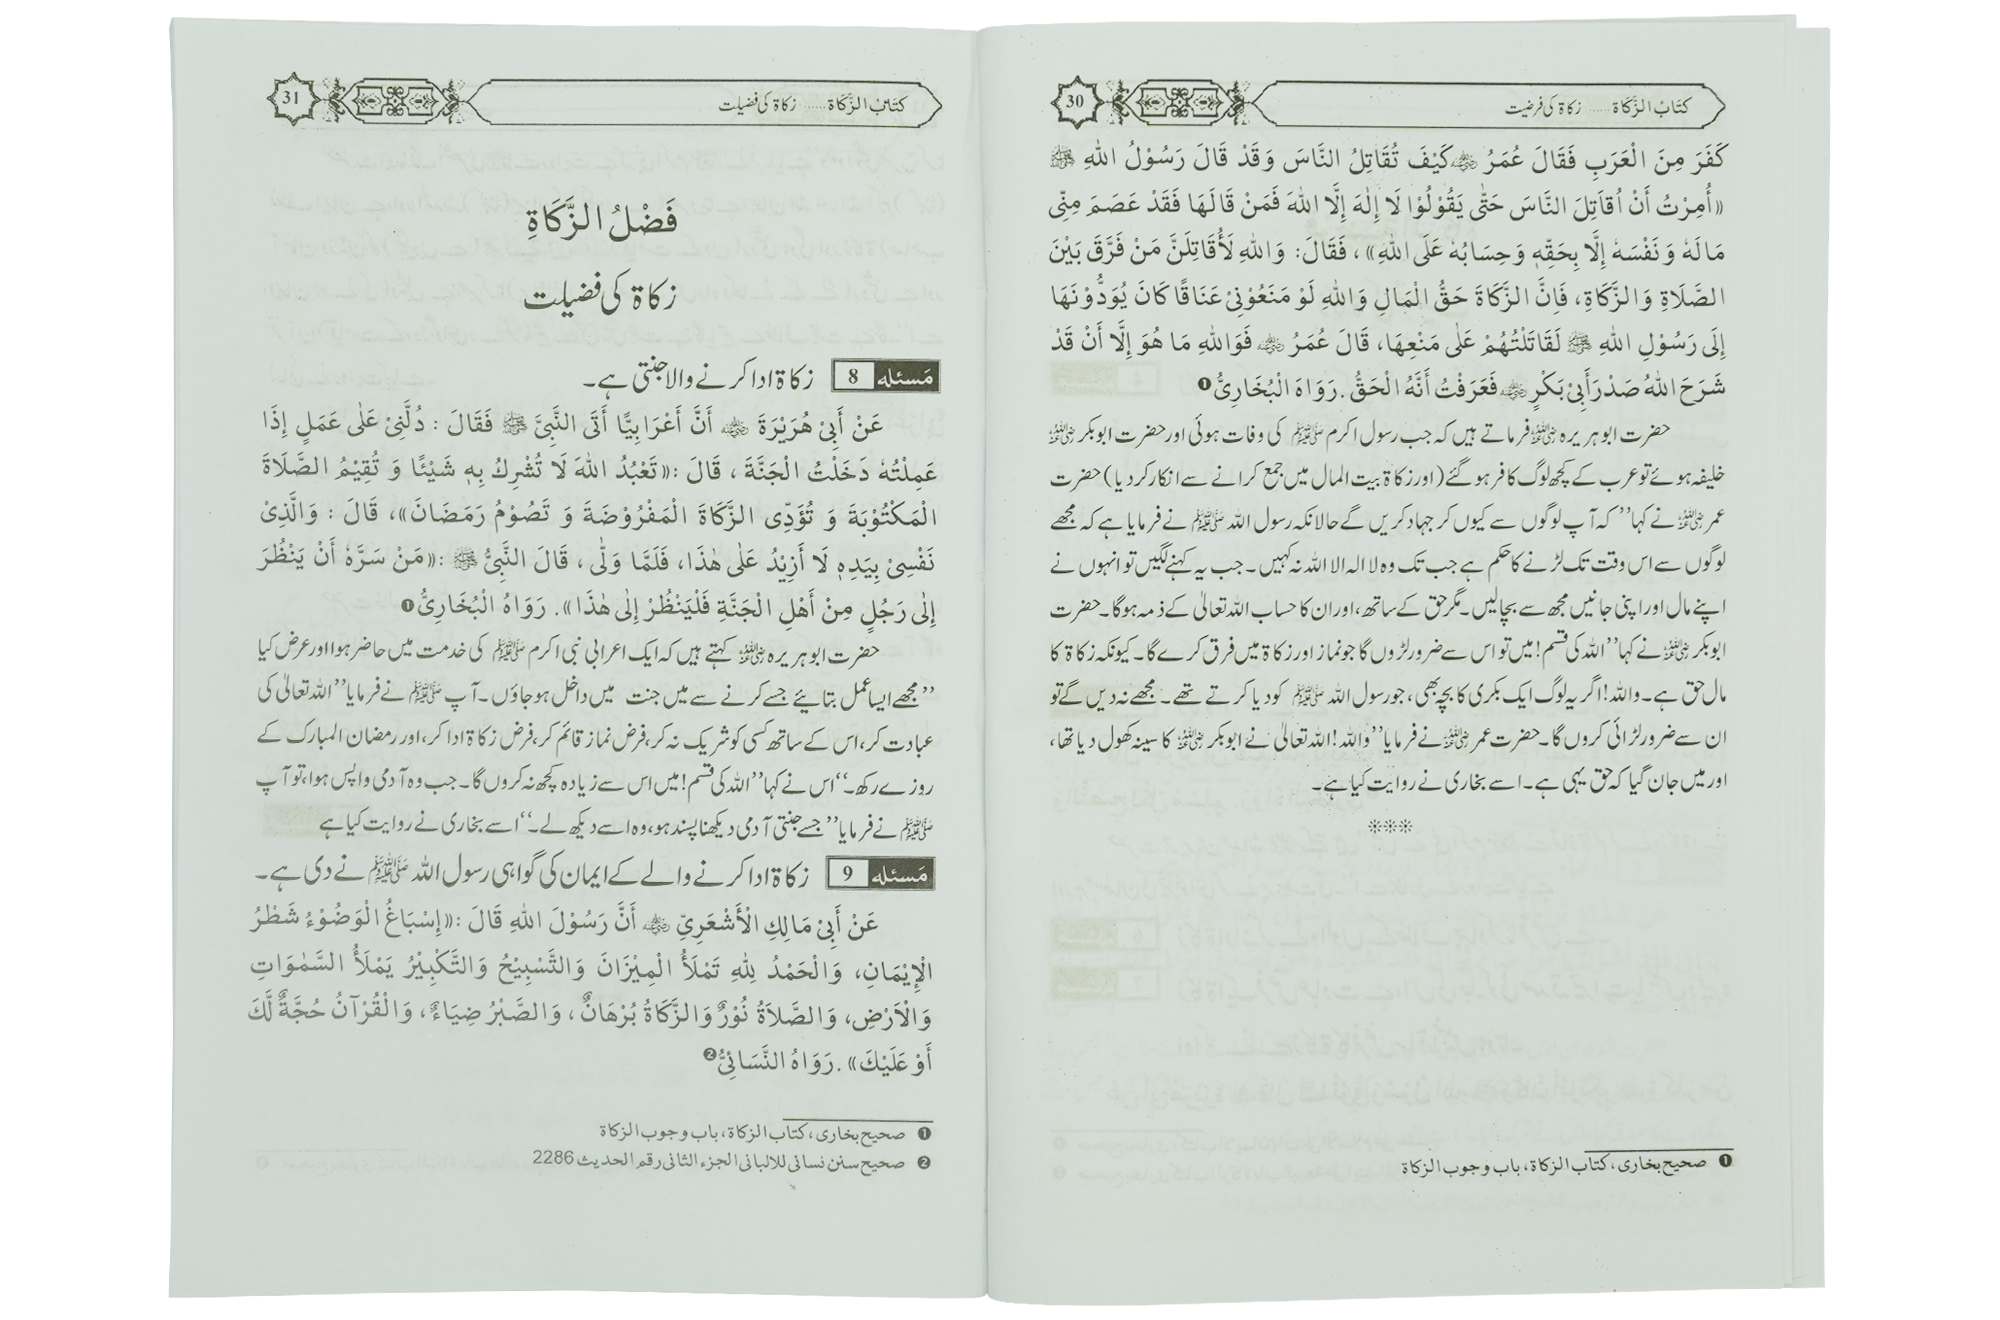 كتاب الزكاة ..... زکاۃ کی فرضیت
30
كَفَرَ مِنَ الْعَرَبِ فَقَالَ عُمَرُ ؓ كَيْفَ تُقَاتِلُ النَّاسَ وَقَدْ قَالَ رَسُوْلُ اللهِ ﷺ
«أُمِرْتُ أَنْ أُقَاتِلَ النَّاسَ حَتّٰى يَقُوْلُوْا لَا إِلٰهَ إِلَّا اللهُ فَمَنْ قَالَهَا فَقَدْ عَصَمَ مِنِّى
مَالَهُ وَنَفْسَهُ إِلَّا بِحَقِّهٖ وَحِسَابُهُ عَلَى اللهِ»، فَقَالَ: وَاللهِ لَأُقَاتِلَنَّ مَنْ فَرَّقَ بَيْنَ
الصَّلَاةِ وَالزَّكَاةِ، فَإِنَّ الزَّكَاةَ حَقُّ الْمَالِ وَاللهِ لَوْ مَنَعُوْنِىْ عَنَاقًا كَانَ يُوَدُّوْنَهَا
إِلَى رَسُوْلِ اللهِ ﷺ لَقَاتَلْتُهُمْ عَلٰى مَنْعِهَا، قَالَ عُمَرُ ؓ فَوَاللهِ مَا هُوَ إِلَّا أَنْ قَدْ
شَرَحَ اللهُ صَدْرَ أَبِىْ بَكْرٍ ؓ فَعَرَفْتُ أَنَّهُ الْحَقُّ. رَوَاهُ الْبُخَارِىُّ ❶
حضرت ابو ہریرہ ؓ فرماتے ہیں کہ جب رسول اکرم ﷺ کی وفات ہوئی اور حضرت ابوبکر ؓ
خلیفہ ہوئے تو عرب کے کچھ لوگ کافر ہوگئے (اور زکاۃ بیت المال میں جمع کرانے سے انکار کردیا) حضرت
عمر ؓ نے کہا ’’کہ آپ لوگوں سے کیوں کر جہاد کریں گے حالانکہ رسول اللہ ﷺ نے فرمایا ہے کہ مجھے
لوگوں سے اس وقت تک لڑنے کا حکم ہے جب تک وہ لا الہ الا اللہ نہ کہیں۔ جب یہ کہنے لگیں تو انہوں نے
اپنے مال اور اپنی جانیں مجھ سے بچالیں۔ مگر حق کے ساتھ، اور ان کا حساب اللہ تعالیٰ کے ذمہ ہوگا۔ حضرت
ابوبکر ؓ نے کہا ’’اللہ کی قسم! میں تو اس سے ضرور لڑوں گا جو نماز اور زکاۃ میں فرق کرے گا۔ کیونکہ زکاۃ کا
مال حق ہے۔ واللہ! اگر یہ لوگ ایک بکری کا بچہ بھی، جو رسول اللہ ﷺ کو دیا کرتے تھے۔ مجھے نہ دیں گے تو
ان سے ضرور لڑائی کروں گا۔ حضرت عمر ؓ نے فرمایا ’’واللہ! اللہ تعالیٰ نے ابوبکر ؓ کا سینہ کھول دیا تھا،
اور میں جان گیا کہ حق یہی ہے۔ اسے بخاری نے روایت کیا ہے۔
***
❶ صحیح بخاری، کتاب الزکاۃ، باب وجوب الزکاۃ
كتاب الزكاة ..... زکاۃ کی فضیلت
31
فَضْلُ الزَّكَاةِ
زکاۃ کی فضیلت
مَسئله 8 زکاۃ ادا کرنے والا جنتی ہے۔
عَنْ أَبِىْ هُرَيْرَةَ ؓ أَنَّ أَعْرَابِيًّا أَتَى النَّبِىَّ ﷺ فَقَالَ: دُلَّنِىْ عَلٰى عَمَلٍ إِذَا
عَمِلْتُهُ دَخَلْتُ الْجَنَّةَ، قَالَ: «تَعْبُدُ اللهَ لَا تُشْرِكُ بِهٖ شَيْئًا وَ تُقِيْمُ الصَّلَاةَ
الْمَكْتُوْبَةَ وَ تُؤَدِّى الزَّكَاةَ الْمَفْرُوْضَةَ وَ تَصُوْمُ رَمَضَانَ»، قَالَ: وَالَّذِىْ
نَفْسِىْ بِيَدِهٖ لَا أَزِيْدُ عَلٰى هٰذَا، فَلَمَّا وَلّٰى، قَالَ النَّبِىُّ ﷺ: «مَنْ سَرَّهُ أَنْ يَنْظُرَ
إِلٰى رَجُلٍ مِنْ أَهْلِ الْجَنَّةِ فَلْيَنْظُرْ إِلٰى هٰذَا». رَوَاهُ الْبُخَارِىُّ ❶
حضرت ابو ہریرہ ؓ کہتے ہیں کہ ایک اعرابی نبی اکرم ﷺ کی خدمت میں حاضر ہوا اور عرض کیا
’’مجھے ایسا عمل بتائیے جسے کرنے سے میں جنت میں داخل ہوجاؤں۔ آپ ﷺ نے فرمایا ’’اللہ تعالیٰ کی
عبادت کر، اس کے ساتھ کسی کو شریک نہ کر، فرض نماز قائم کر، فرض زکاۃ ادا کر، اور رمضان المبارک کے
روزے رکھ۔‘‘ اس نے کہا ’’اللہ کی قسم! میں اس سے زیادہ کچھ نہ کروں گا۔ جب وہ آدمی واپس ہوا، تو آپ
ﷺ نے فرمایا ’’جسے جنتی آدمی دیکھنا پسند ہو، وہ اسے دیکھ لے۔‘‘ اسے بخاری نے روایت کیا ہے
مَسئله 9 زکاۃ ادا کرنے والے کے ایمان کی گواہی رسول اللہ ﷺ نے دی ہے۔
عَنْ أَبِىْ مَالِكِ الْأَشْعَرِىِّ ؓ أَنَّ رَسُوْلَ اللهِ قَالَ: «إِسْبَاغُ الْوَضُوْءُ شَطْرُ
الْإِيْمَانِ، وَالْحَمْدُ لِلّٰهِ تَمْلَأُ الْمِيْزَانَ وَالتَّسْبِيْحُ وَالتَّكْبِيْرُ يَمْلَأُ السَّمٰوَاتِ
وَالْاَرْضِ، وَالصَّلَاةُ نُوْرٌ وَالزَّكَاةُ بُرْهَانٌ، وَالصَّبْرُ ضِيَاءٌ، وَالْقُرْآنُ حُجَّةٌ لَّكَ
أَوْ عَلَيْكَ». رَوَاهُ النَّسَائِىُّ ❷
❶ صحیح بخاری، کتاب الزکاۃ، باب وجوب الزکاۃ
❷ صحیح سنن نسائی للالبانی الجزء الثانی رقم الحدیث 2286